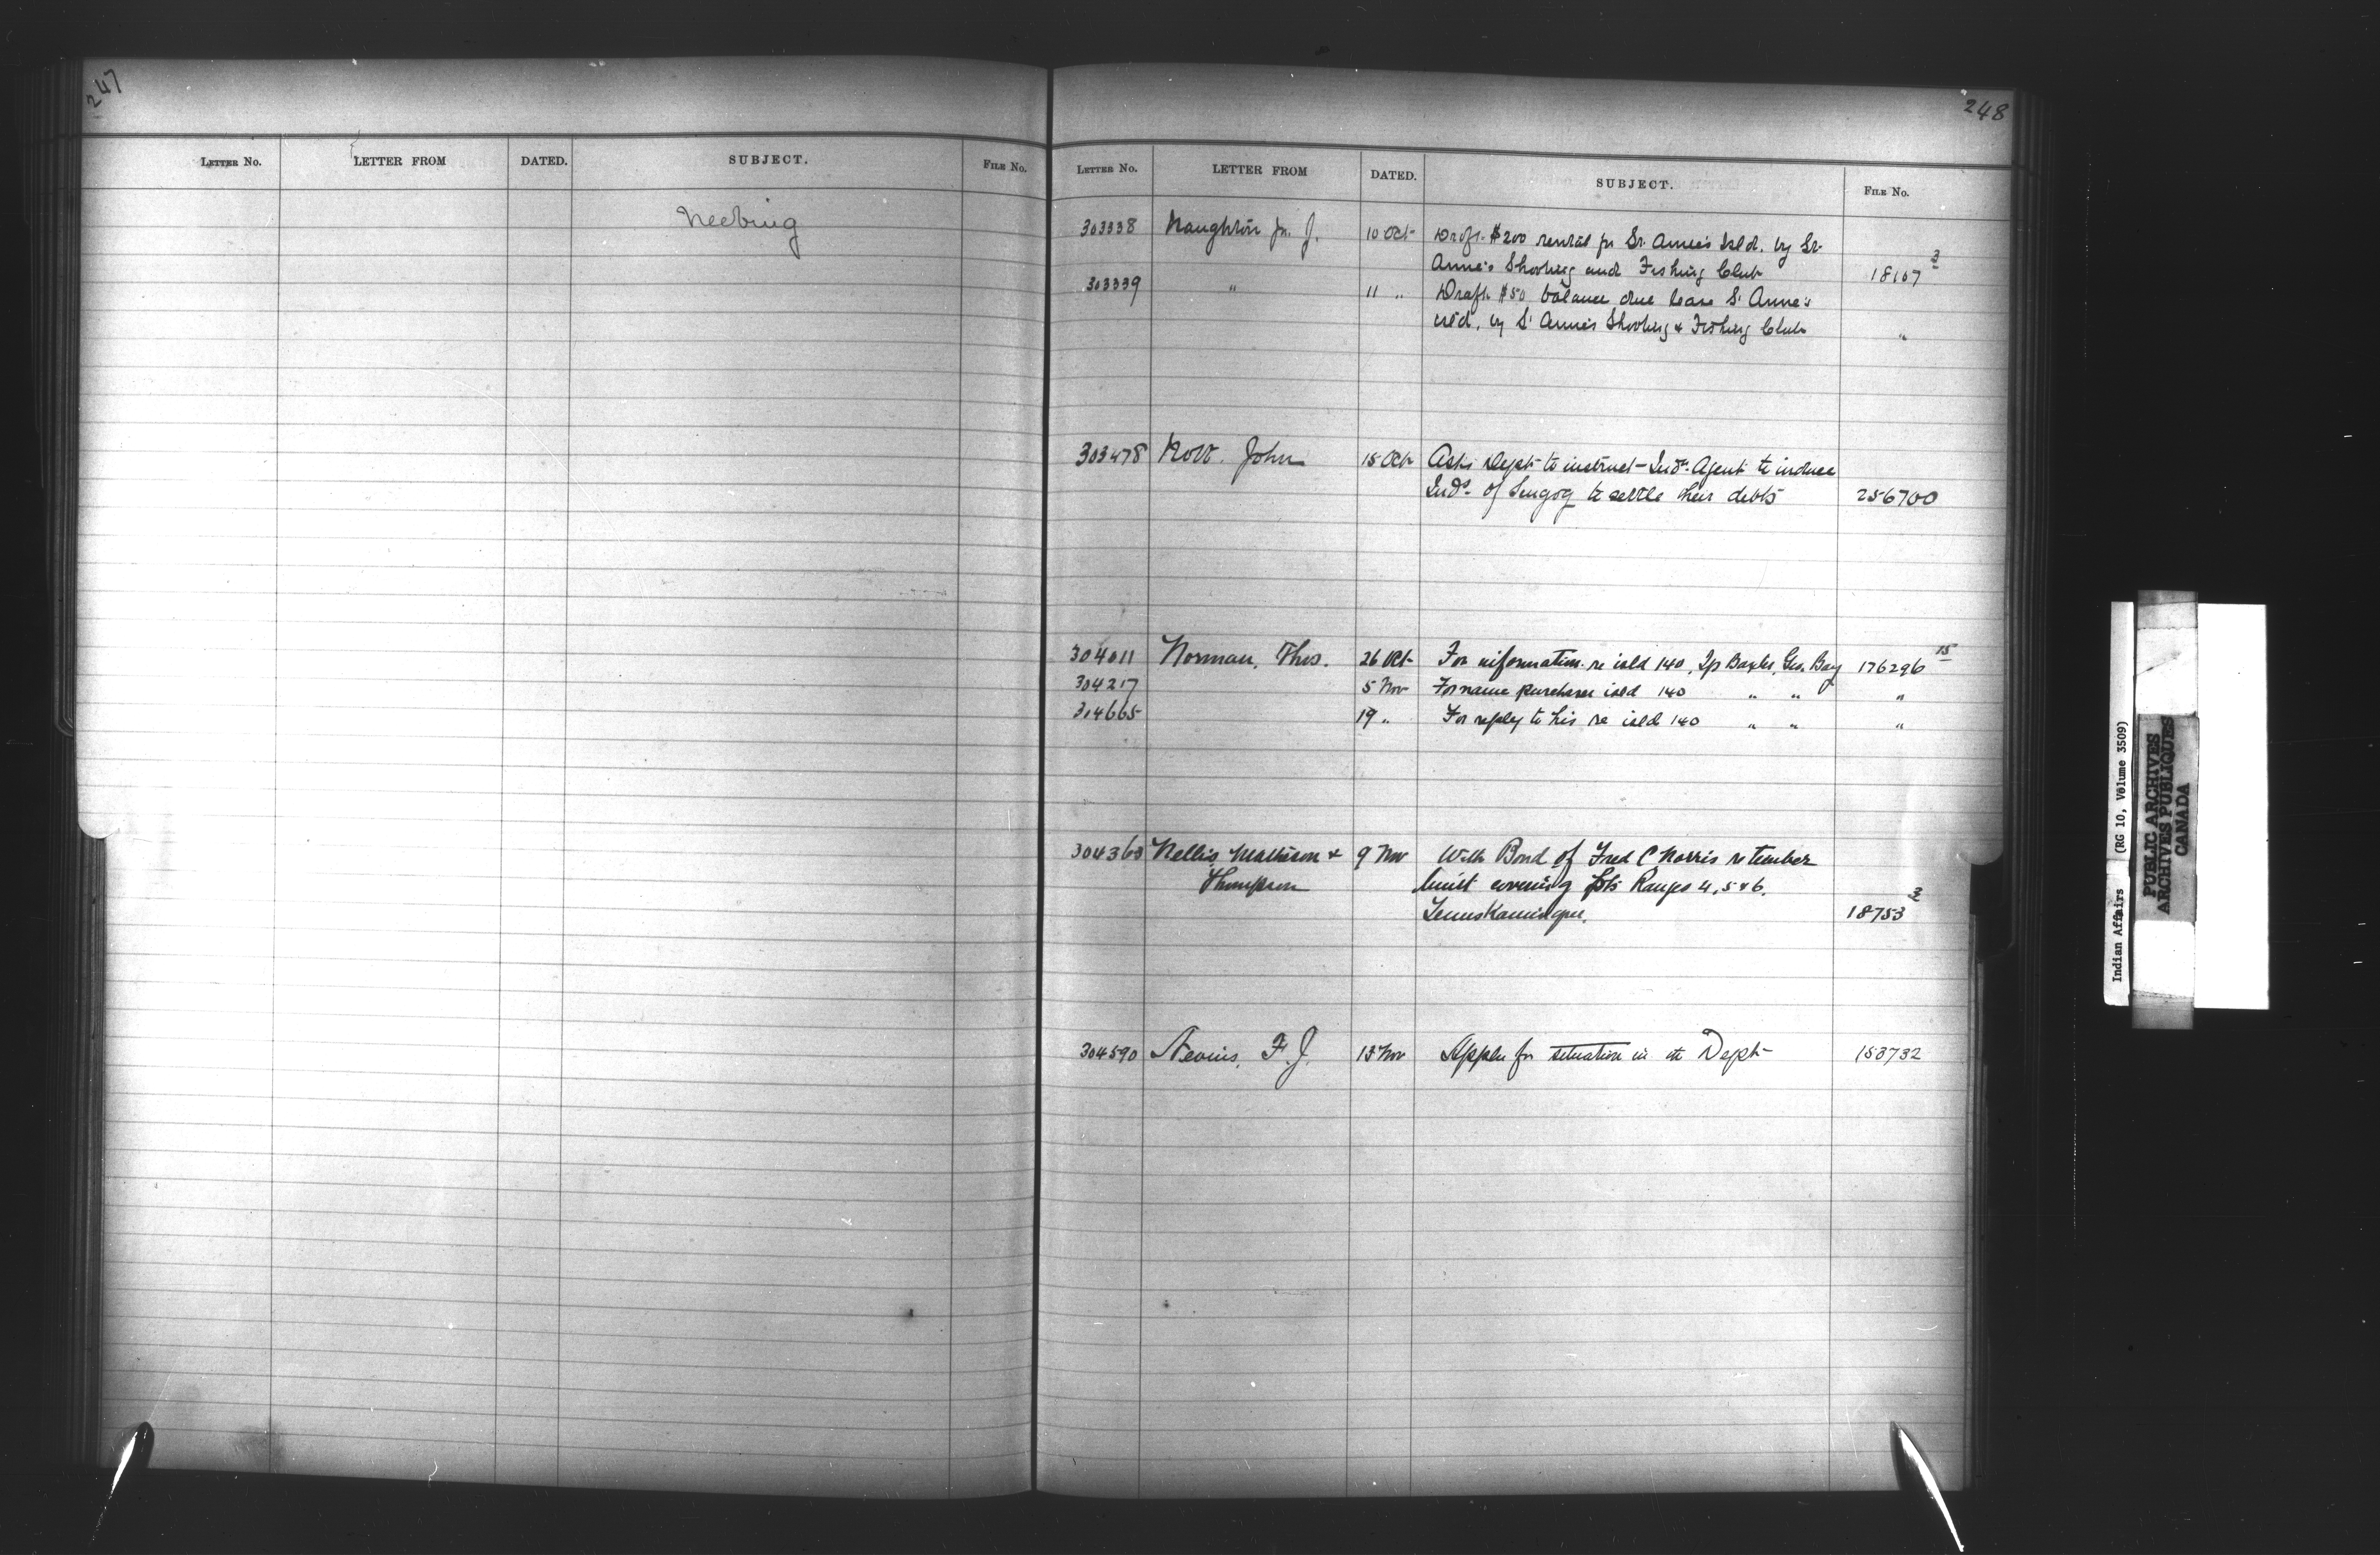 247
LETTER NO. LETTER FROM DATED. SUBJECT. FILE NO.
Neebing
248
LETTER NO. LETTER FROM DATED. SUBJECT. FILE NO.
303338 Naughton Jn. J. 10 Oct Draft $200 rental for St. Anne's Isld. by St.
Anne's Shooting and Fishing Club 18107 3
303339 " 11 " Draft $50 balance due lease St Anne's
isld. by St Anne's Shooting & Fishing Club "
303478 Nott John 15 Oct Asks Dept to instruct Indn. Agent to induce
Inds. of Scugog to settle their debts 256700
304011 Norman, Thos. 26 Oct For information re isld 140, Tp Baxter, Geo. Bay 176296 15
304217 5 Nov For name purchaser isld 140 " " "
304665 19 " For reply to his re isld 140 " " "
304363 Nellis Matheson & 9 Nov With Bond of Fred C Norris re timber
Thompson limit covering Ranges 4, 5 & 6.
Temiskamingue. 18753 2
304590 Nevins, F. J. 13 Nov Appln for situation in the Dept 153732
Indian Affairs (RG 10, Volume 3509)
PUBLIC ARCHIVES
ARCHIVES PUBLIQUES
CANADA